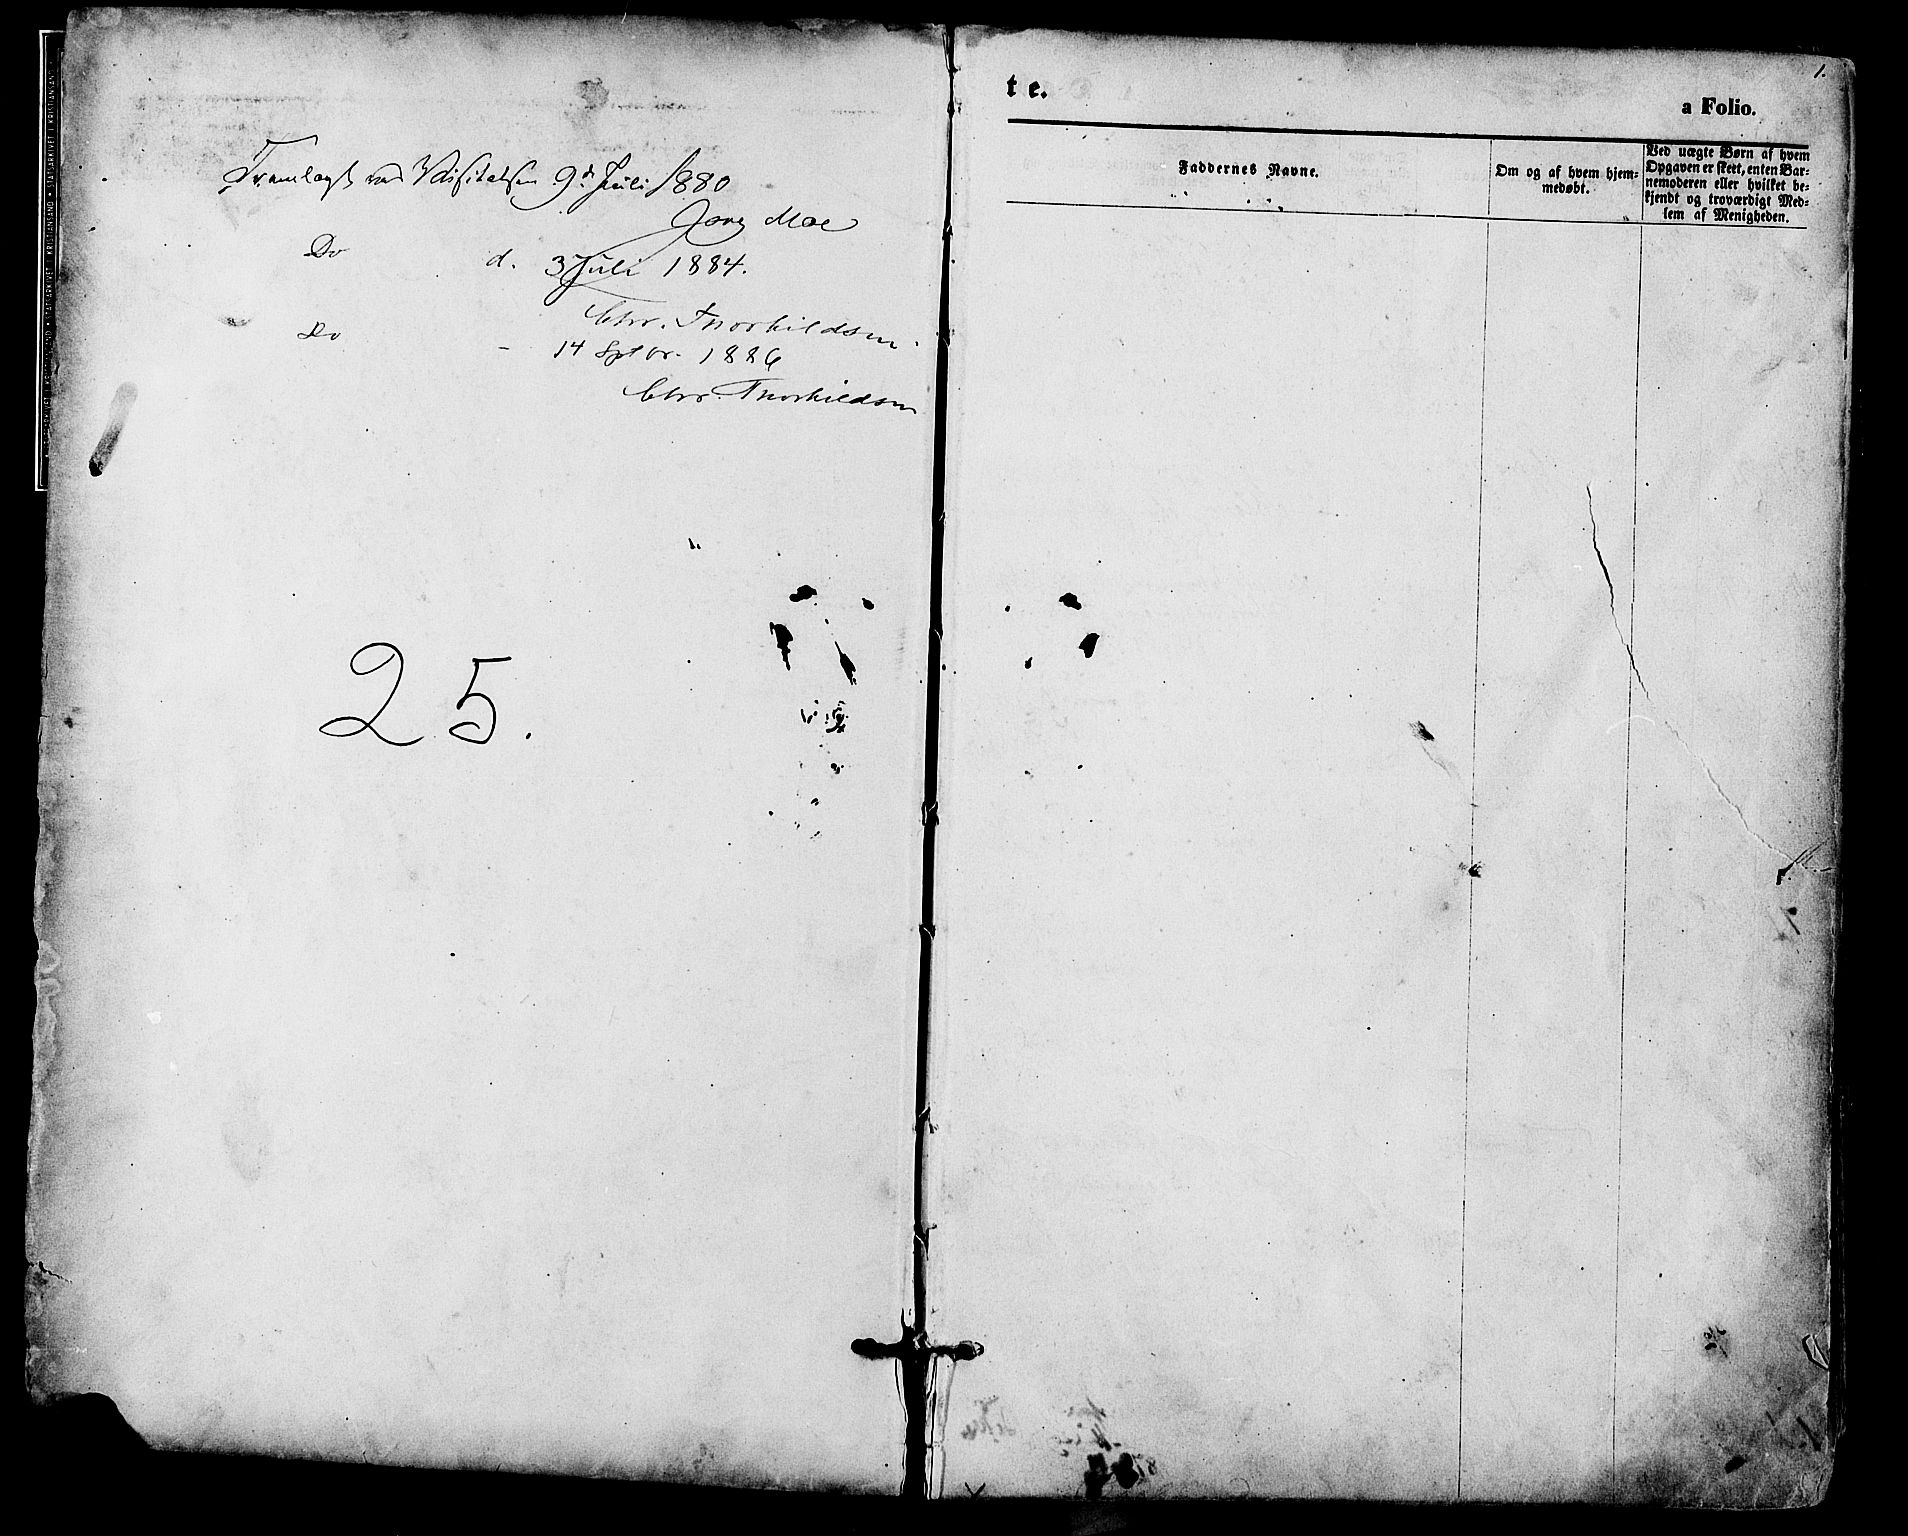 Fremlagt ved Visitatsen 9d. Juli 1880
Jørg Moe
Do d. 3 Juli 1884.
Chr. Thorkildsen.
Do - 14 Septbr. 1886
Chr. Thorkildsen
25.
1.
te.
a Folio.
Faddernes Navne.
Om og af hvem hjem-
medøbt.
Ved uægte Børn af hvem
Opgaven er skeet, enten Bar-
nemoderen eller hvilket be-
kjendt og troværdigt Med-
lem af Menigheden.
STATSARKIVET I KRISTIANSAND • STATSARKIVET I KRISTIANSAND